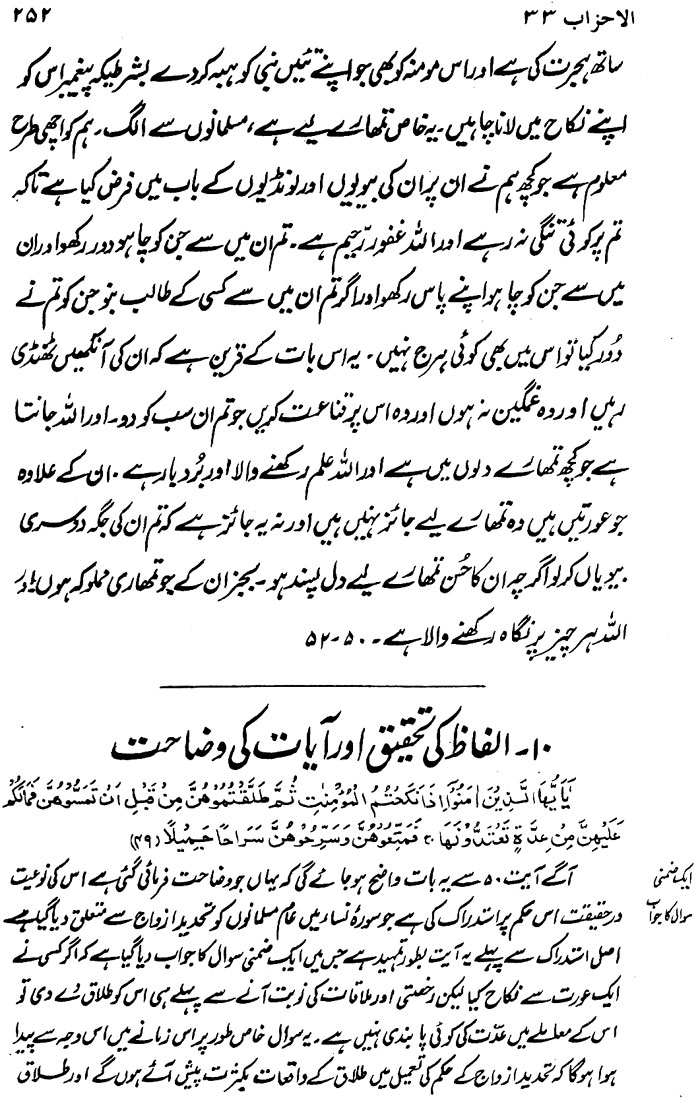 الاحزاب ۳۳
۲۵۲
ساتھ ہجرت کی ہے اور اس مومنہ کو بھی جو اپنے تئیں نبی کو ہبہ کر دے بشرطیکہ پیغمبر اس کو
اپنے نکاح میں لانا چاہیں۔ یہ خاص تمھارے لیے ہے، مسلمانوں سے الگ۔ ہم کو اچھی طرح
معلوم ہے جو کچھ ہم نے ان پر ان کی بیویوں اور لونڈیوں کے باب میں فرض کیا ہے تاکہ
تم پر کوئی تنگی نہ رہے اور اللہ غفور رّحیم ہے۔ تم ان میں سے جن کو چاہو دور رکھو اور ان
میں سے جن کو چاہو اپنے پاس رکھو اور اگر تم ان میں سے کسی کے طالب بنو جن کو تم نے
دُور کیا تو اس میں بھی کوئی ہرج نہیں۔ یہ اس بات کے قرین ہے کہ ان کی آنکھیں ٹھنڈی
رہیں اور وہ غمگین نہ ہوں اور وہ اس پر قناعت کریں جو تم ان سب کو دو۔ اور اللہ جانتا
ہے جو کچھ تمھارے دلوں میں ہے اور اللہ علم رکھنے والا اور بُردبار ہے۔ ان کے علاوہ
جو عورتیں ہیں وہ تمھارے لیے جائز نہیں ہیں اور نہ یہ جائز ہے کہ تم ان کی جگہ دوسری
بیویاں کر لو اگرچہ ان کا حُسن تمھارے لیے دل پسند ہو۔ بجز ان کے جو تمھاری مملوکہ ہوں اور
اللہ ہر چیز پر نگاہ رکھنے والا ہے۔ ۵۰-۵۲
۱۰۔ الفاظ کی تحقیق اور آیات کی وضاحت
يٰۤاَيُّهَا الَّذِيْنَ اٰمَنُوْۤا اِذَا نَكَحْتُمُ الْمُؤْمِنٰتِ ثُمَّ طَلَّقْتُمُوْهُنَّ مِنْ قَبْلِ اَنْ تَمَسُّوْهُنَّ فَمَا لَكُمْ
عَلَيْهِنَّ مِنْ عِدَّةٍ تَعْتَدُّوْنَهَا ۚ فَمَتِّعُوْهُنَّ وَسَرِّحُوْهُنَّ سَرَاحًا جَمِيْلًا (۴۹)
ایک ضمنی
سوال کا جواب
آگے آیت ۵۰ سے یہ بات واضح ہو جائے گی کہ یہاں جو وضاحت فرمائی گئی ہے اس کی نوعیت
درحقیقت اس حکم پر استدراک کی ہے جو سورۂ نساء میں عام مسلمانوں کو تحدید ازواج سے متعلق دیا گیا ہے
اصل استدراک سے پہلے یہ آیت بطور تمہید ہے جس میں ایک ضمنی سوال کا جواب دیا گیا ہے کہ اگر کسی نے
ایک عورت سے نکاح کیا لیکن رخصتی اور ملاقات کی نوبت آنے سے پہلے ہی اس کو طلاق دے دی تو
اس کے معاملے میں عدّت کی کوئی پابندی نہیں ہے۔ یہ سوال خاص طور پر اس زمانے میں اس وجہ سے پیدا
ہوا ہوگا کہ تحدید ازواج کے حکم کی تعمیل میں طلاق کے واقعات بکثرت پیش آئے ہوں گے اور طلاق